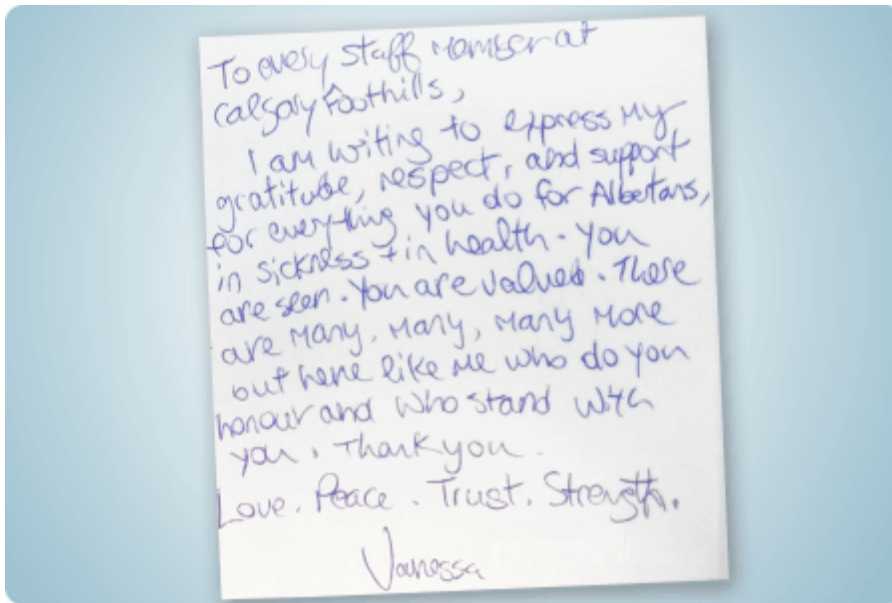 To every staff member at
Calgary Foothills,
I am writing to express my
gratitude, respect, and support
for everything you do for Albertans,
in sickness + in health. You
are seen. You are valued. There
are many, many, many more
out here like me who do you
honour and who stand with
you. Thank you.
Love. Peace. Trust. Strength.
Vanessa